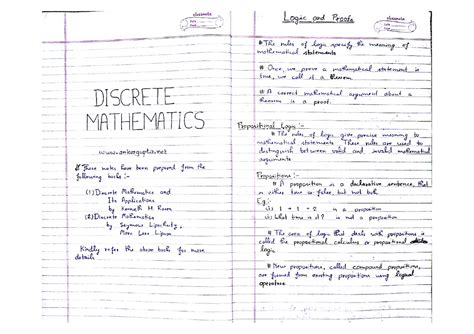 classmate
Date
Page
DISCRETE
MATHEMATICS
www.ankurgupta.net
# These notes have been prepared from the
following books :-
(1) Discrete Mathematics and
Its Applications
by Kenneth H. Rosen
(2) Discrete Mathematics
by Seymour Lipschutz,
Marc Lars Lipson
Kindly refer the above books for more
details.
Logic and Proofs
classmate
Date
Page
# The rules of logic specify the meaning of
mathematical statements
# Once we prove a mathematical statement is
true, we call it a theorem
# A correct mathematical argument about a
theorem is a proof.
Propositional Logic :-
# The rules of logic give precise meaning to
mathematical statements. These rules are used to
distinguish between valid and invalid mathematical
arguments
Propositions :-
# A proposition is a declarative sentence, that
is either true or false, but not both
E.g.
(i) 1 + 1 = 2 is a proposition
(ii) What time is it? is not a proposition
# The area of logic that deals with propositions is
called the propositional calculus or propositional
logic
# New propositions, called compound propositions,
are formed from existing propositions using logical
operators